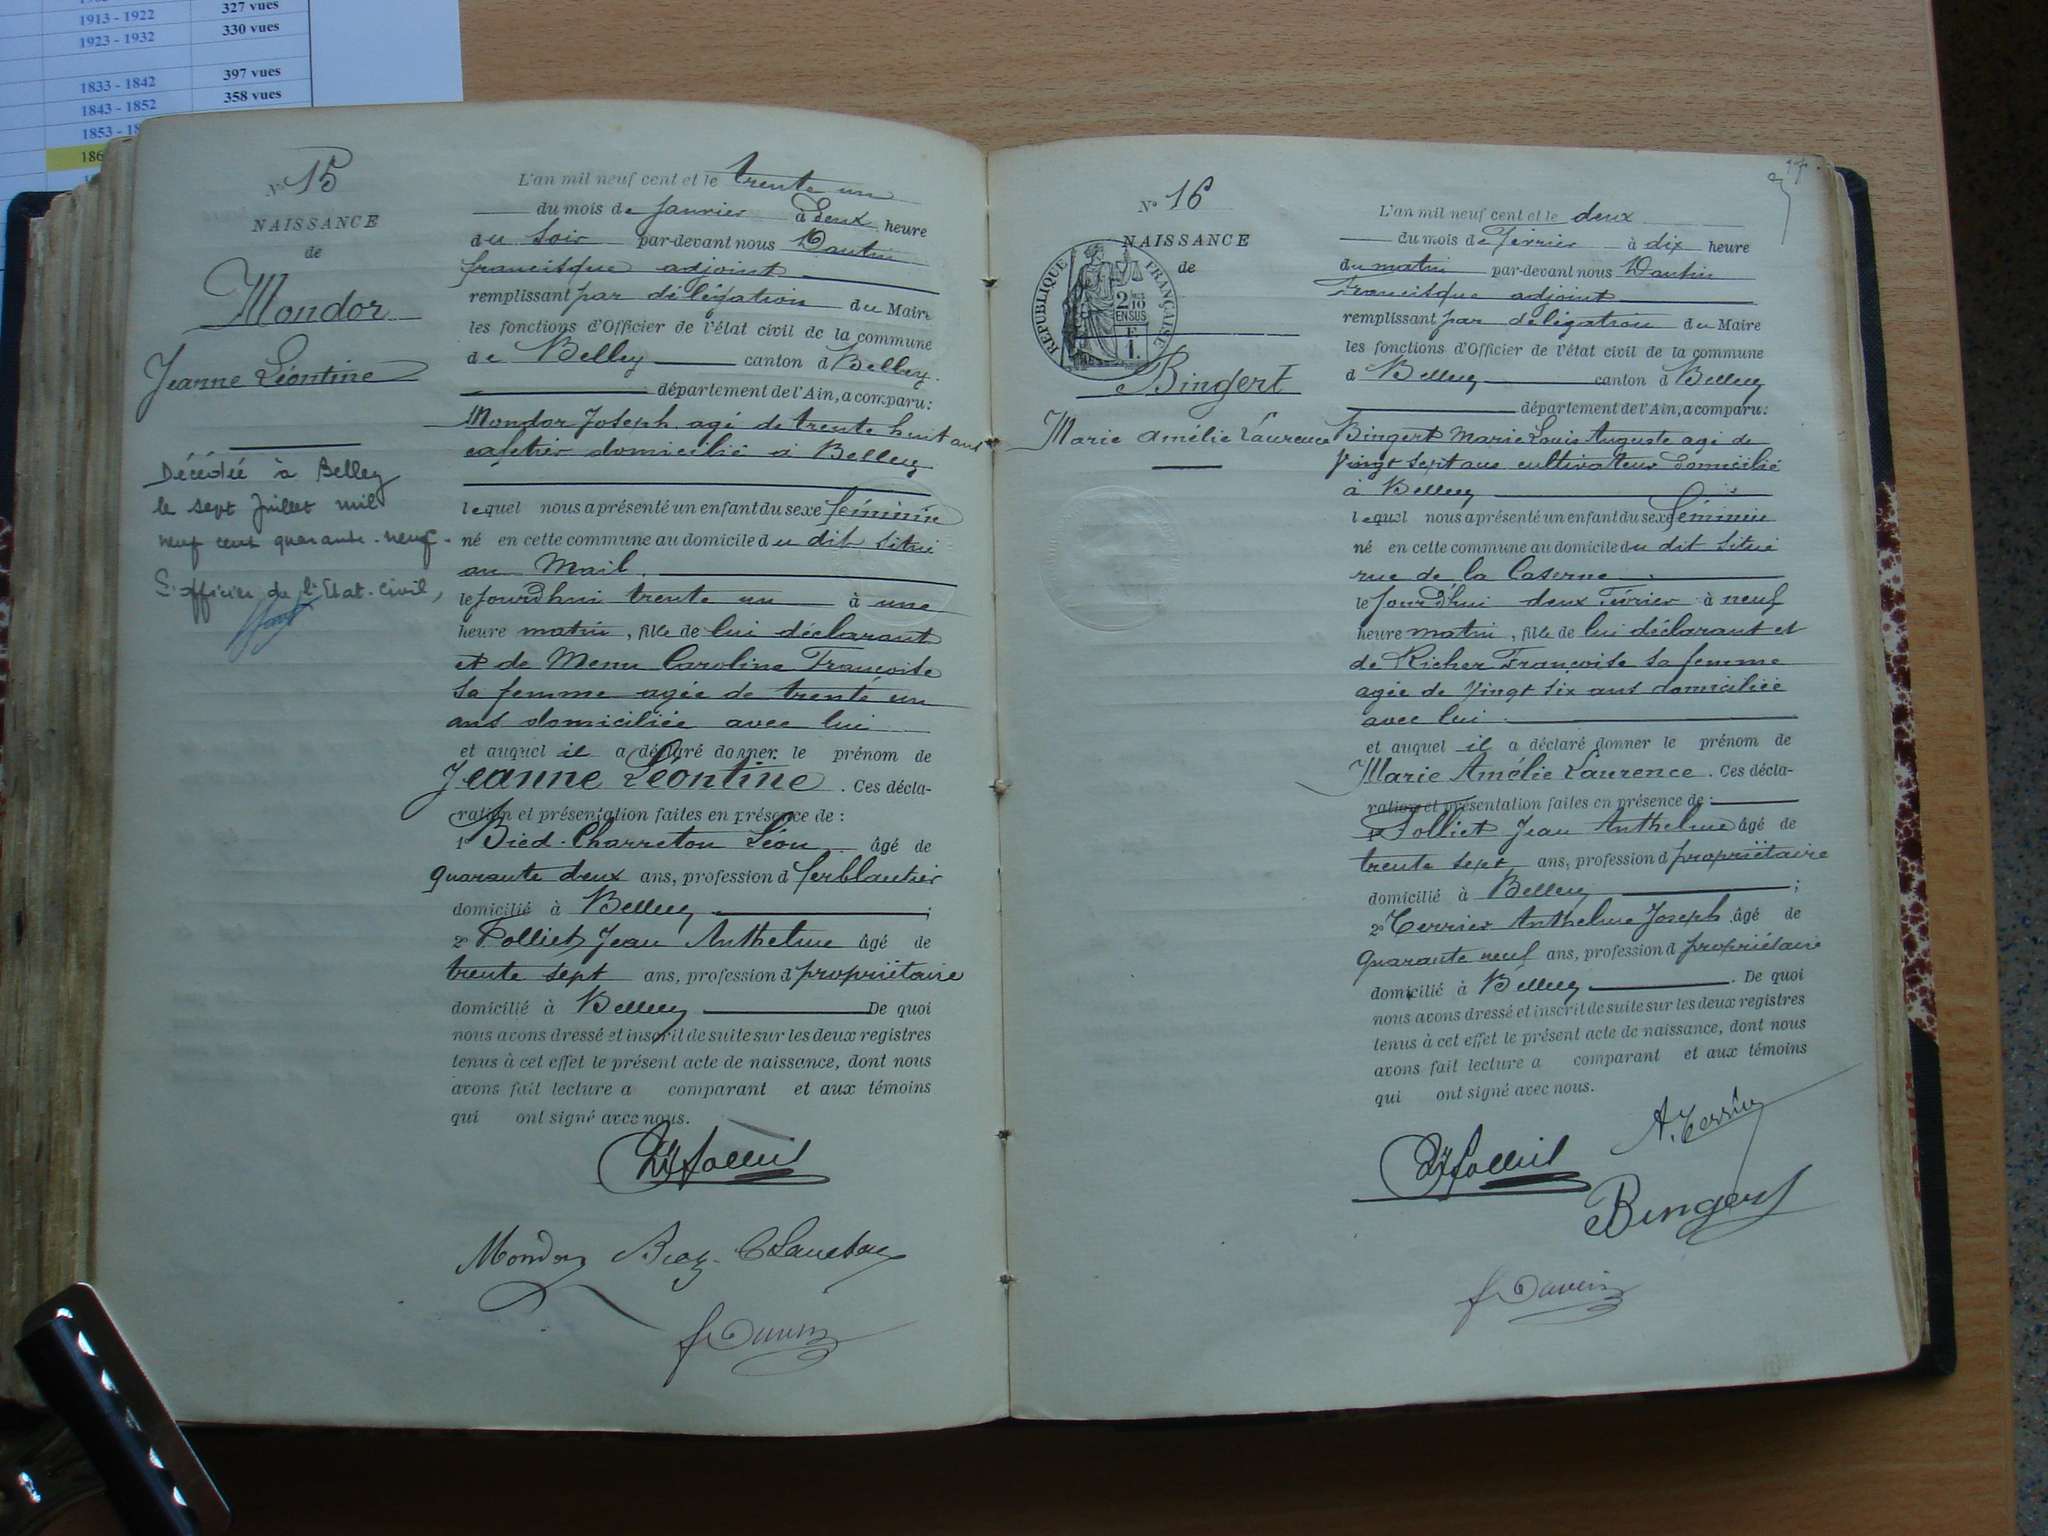 1913 - 1922 327 vues
1923 - 1932 330 vues
1833 - 1842 397 vues
1843 - 1852 358 vues
1853 - 18
186
N° 15
NAISSANCE
de
Mondor
Jeanne Léontine
Décédée à Belley
le sept Juillet mil
neuf cent quarante-neuf.
L'officier de l'Etat-Civil,
L'an mil neuf cent et le trente un
du mois de Janvier à deux heure
du soir par-devant nous Dantin
francisque adjoint
remplissant par délégation du Maire
les fonctions d'Officier de l'état civil de la commune
de Belley canton d Belley.
département de l'Ain, a comparu:
Mondor Joseph agé de trente huit ans
cafetier domicilié à Belley
lequel nous a présenté un enfant du sexe féminin
né en cette commune au domicile du dit situé
au Mail.
le Jourd'hui trente un à une
heure matin, fille de lui déclarant
et de Menu Caroline Françoise
sa femme agée de trente un
ans domiciliée avec lui
et auquel il a déclaré donner le prénom de
Jeanne Léontine. Ces décla-
ration et présentation faites en présence de :
1° Bied-Charreton Léon âgé de
quarante deux ans, profession d ferblantier
domicilié à Belley ;
2° Folliet Jean Anthelme âgé de
trente sept ans, profession d propriétaire
domicilié à Belley De quoi
nous avons dressé et inscrit de suite sur les deux registres
tenus à cet effet le présent acte de naissance, dont nous
avons fait lecture a comparant et aux témoins
qui ont signé avec nous.
Mondor
N° 16
NAISSANCE
de
RÉPUBLIQUE FRANÇAISE
2/10 EN SUS
F
1.
Bingert
Marie Amélie Laurence
L'an mil neuf cent et le deux
du mois de Février à dix heure
du matin par-devant nous Dantin
Francisque adjoint
remplissant par délégation du Maire
les fonctions d'Officier de l'état civil de la commune
d Belley canton d Belley
département de l'Ain, a comparu:
Bingert Marie Louis Auguste agé de
vingt sept ans cultivateur domicilié
à Belley
lequel nous a présenté un enfant du sexe féminin
né en cette commune au domicile du dit situé
rue de la Caserne.
le Jourd'hui deux Février à neuf
heure matin, fille de lui déclarant et
de Richer Françoise sa femme
agée de vingt six ans domiciliée
avec lui.
et auquel il a déclaré donner le prénom de
Marie Amélie Laurence. Ces décla-
ration et présentation faites en présence de :
1° Folliet Jean Anthelme âgé de
trente sept ans, profession d propriétaire
domicilié à Belley ;
2° Terrier Anthelme Joseph âgé de
quarante neuf ans, profession d propriétaire
domicilié à Belley . De quoi
nous avons dressé et inscrit de suite sur les deux registres
tenus à cet effet le présent acte de naissance, dont nous
avons fait lecture a comparant et aux témoins
qui ont signé avec nous.
A. Terrier
Bingert